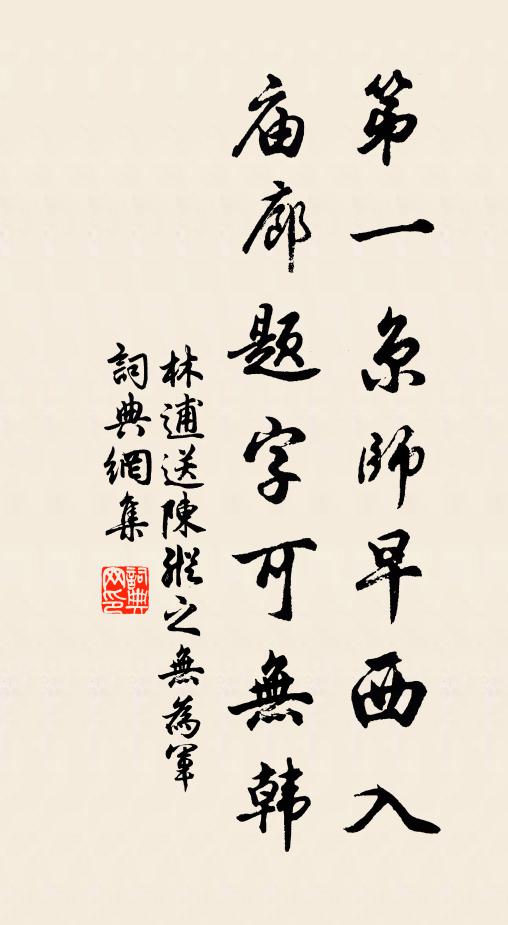 第一京師早西入
庙廊題字可無韩
林逋送陳纵之無為軍
詞典網集
詞典
网印